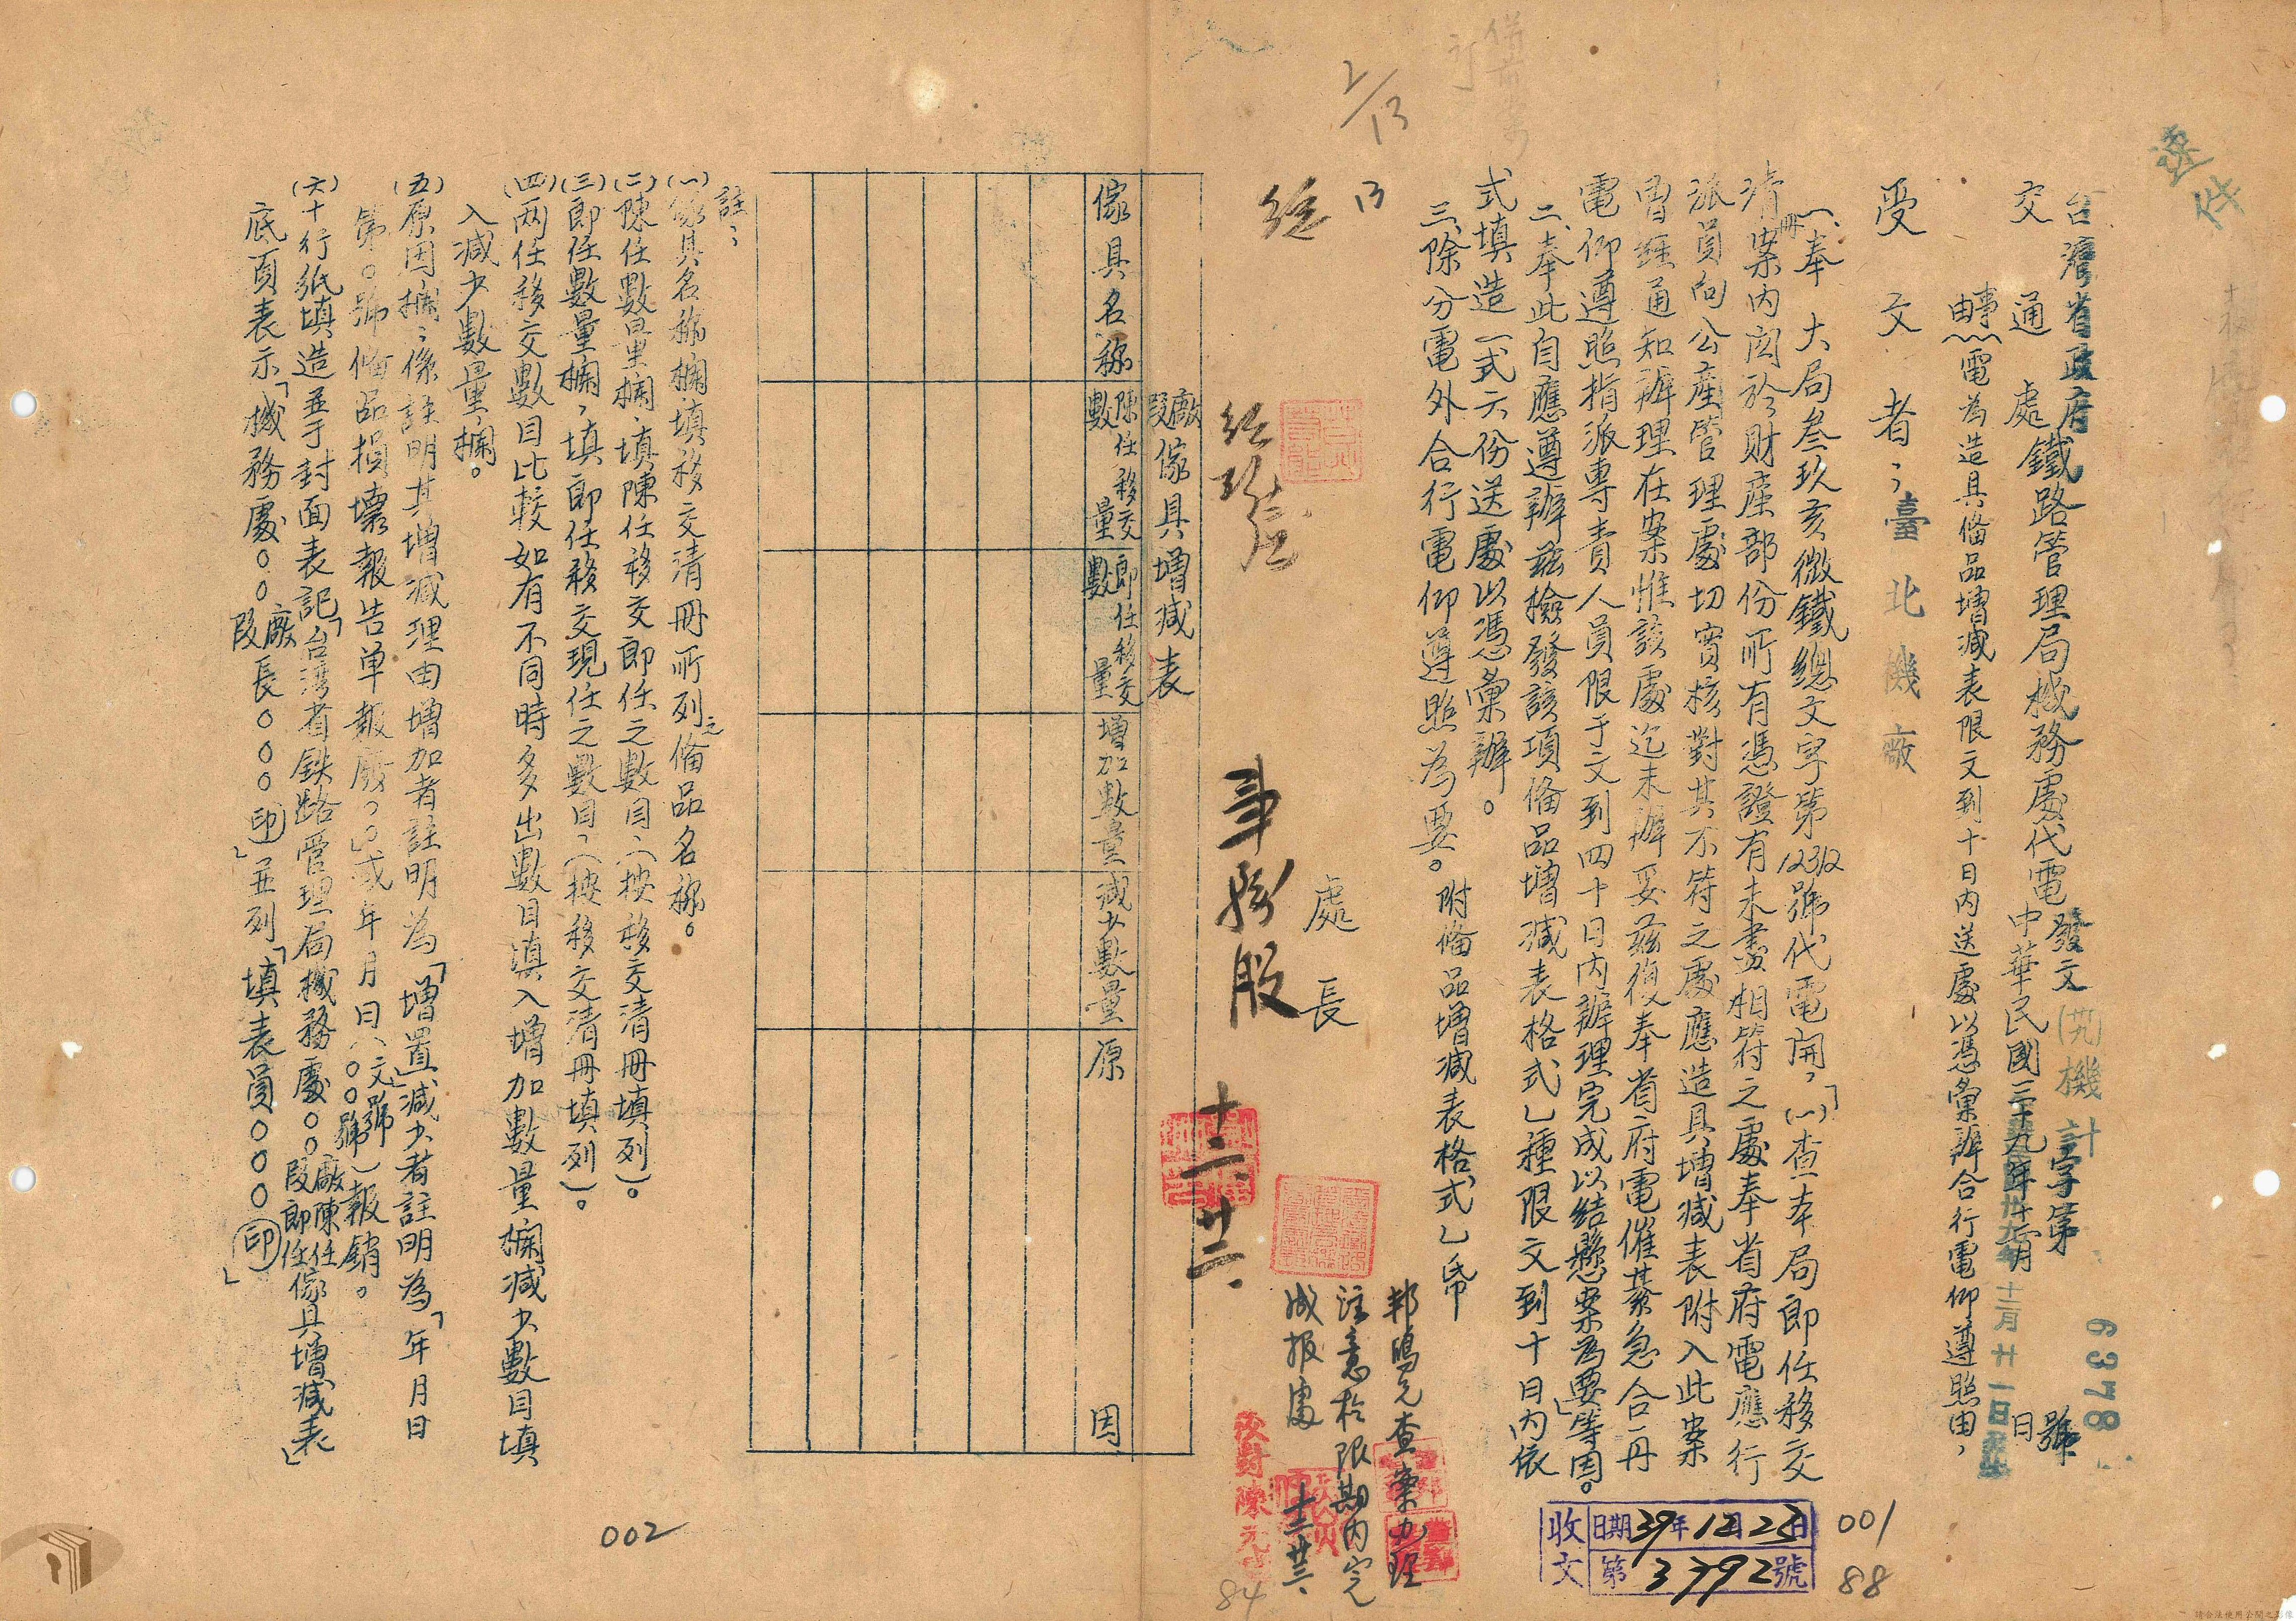 速件
台灣省政府
交通處鐵路管理局機務處代電
發文(卅九)機計字第6378號
中華民國三十九年十二月廿一日
事由：電為造具俻品增减表限文到十日内送處以憑彙辦合行電仰遵照由，
受文者：臺北機廠
一、奉　大局叁玖亥微鐵總文字第12312號代電開，「(一)查本局即任移交
清冊案内関於財產部份所有憑證有未盡相符之處奉省府電應行
派員向公產管理處切實核對其不符之處應造具增减表附入此案
曾經通知辦理在案惟該處迄未辦妥兹復奉省府電催綦急合再
電仰遵照指派專責人員限于文到四十日内辦理完成以結懸案為要」等因。
二、奉此自應遵辦兹檢發該項俻品增减表格式乙種限文到十日内依
式填造一式六份送處以憑彙辦。
三、除分電外合行電仰遵照為要。附俻品增减表格式乙帋
處長
2/13
事務股
十二、廿二、
查案办理
注意於限期内完
成报處
十二廿三、
校對陳元
收文
日期39年12月23日
第3792號
001
88
84
廠段傢具增减表
傢具名称
陳任移交數量
即任移交數量
增加數量
减少數量
原因
註：
(一)傢具名称欄填移交清冊所列之俻品名称。
(二)陳任數量欄，填陳任移交即任之數目，(按移交清冊填列)。
(三)即任數量欄，填即任移交現任之數目，(按移交清冊填列)。
(四)两任移交數目比較如有不同時多出數目填入增加數量欄减少數目填
入减少數量欄。
(五)原因欄：係註明其增减理由增加者註明為「增置」减少者註明為「年月日
第○號俻品損壞報告单報廢，」或年月日(文號○○○號)報銷。
(六)十行紙填造並于封面表記「台湾省鉄路管理局機務處○○廠段陳任即任傢具增减表」
底頁表示「機務處○○廠段長○○○印」並列「填表員○○○印」
002